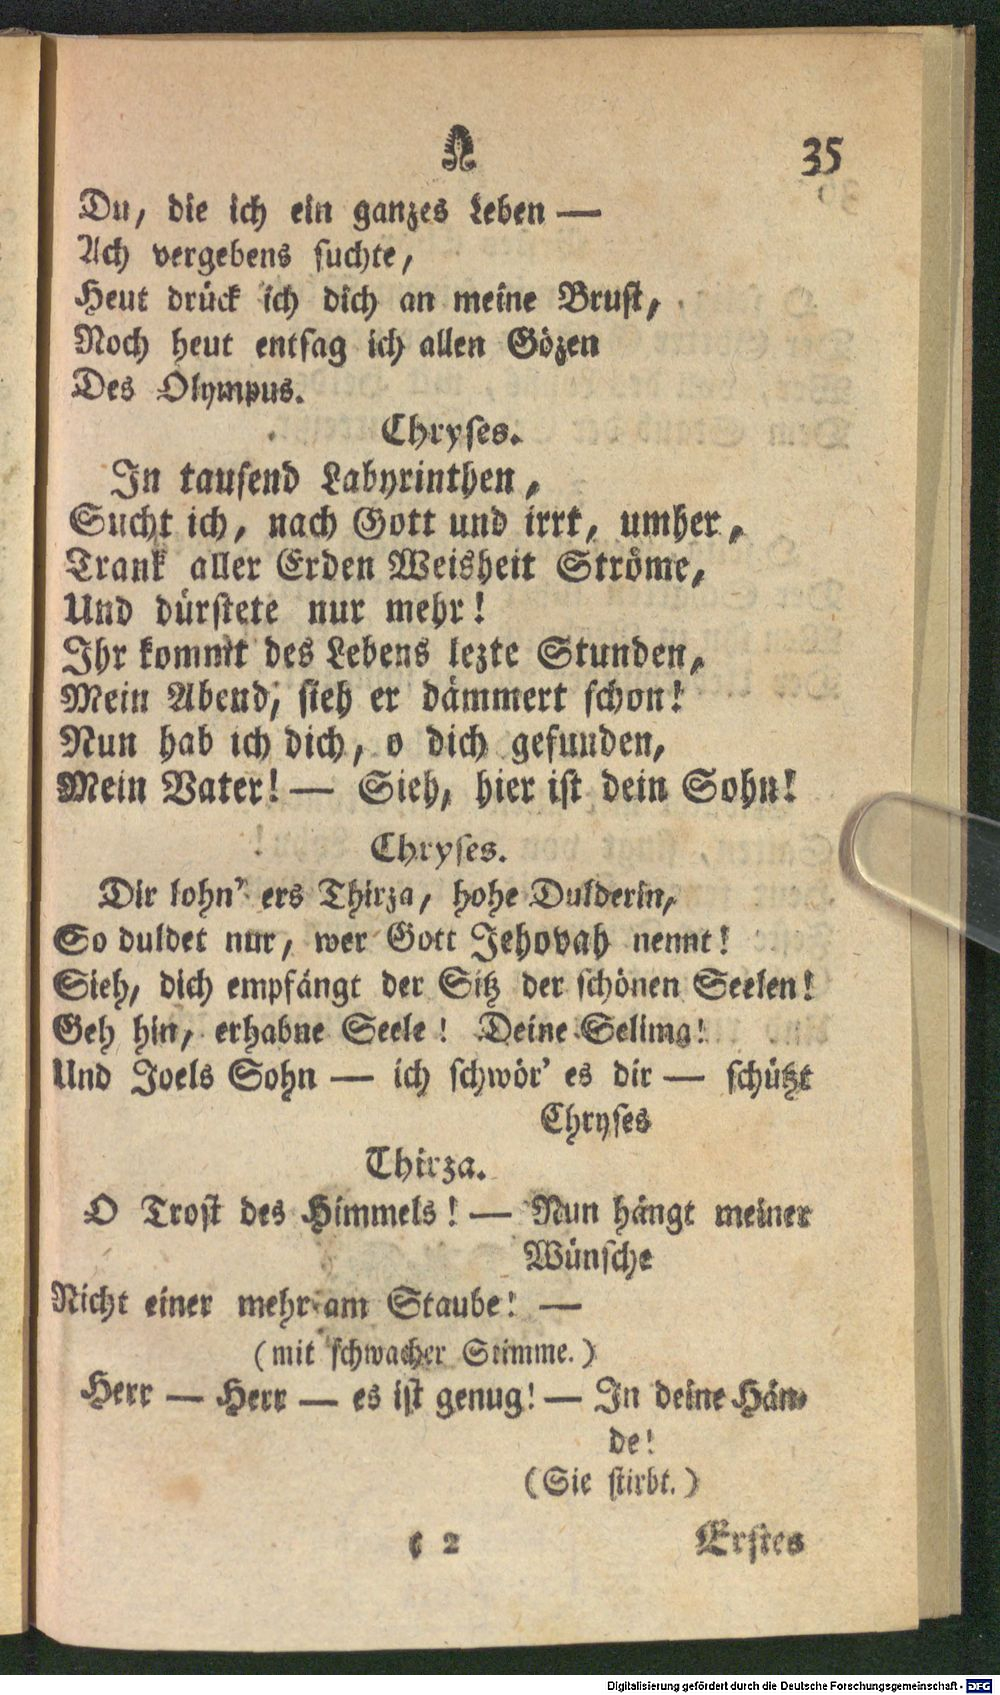 35
Du, die ich ein ganzes Leben —
Ach vergebens suchte,
Heut drück ich dich an meine Brust,
Noch heut entsag ich allen Gözen
Des Olympus.
Chryses.
In tausend Labyrinthen,
Sucht ich, nach Gott und irrt, umher,
Trank aller Erden Weisheit Ströme,
Und dürstete nur mehr!
Ihr kommt des Lebens lezte Stunden,
Mein Abend, sieh er dämmert schon!
Nun hab ich dich, o dich gefunden,
Mein Vater! — Sieh, hier ist dein Sohn!
Chryses.
Dir lohn' ers Thirza, hohe Dulderin,
So duldet nur, wer Gott Jehovah nennt!
Sieh, dich empfängt der Sitz der schönen Seelen!
Geh hin, erhabne Seele! Deine Selima!
Und Joels Sohn — ich schwör' es dir — schützt
Chryses
Thirza.
O Trost des Himmels! — Nun hängt meiner
Wünsche
Nicht einer mehr am Staube! —
(mit schwacher Stimme.)
Herr — Herr — es ist genug! — In deine Hän-
de!
(Sie stirbt.)
c 2 Erstes
Digitalisierung gefördert durch die Deutsche Forschungsgemeinschaft - DFG